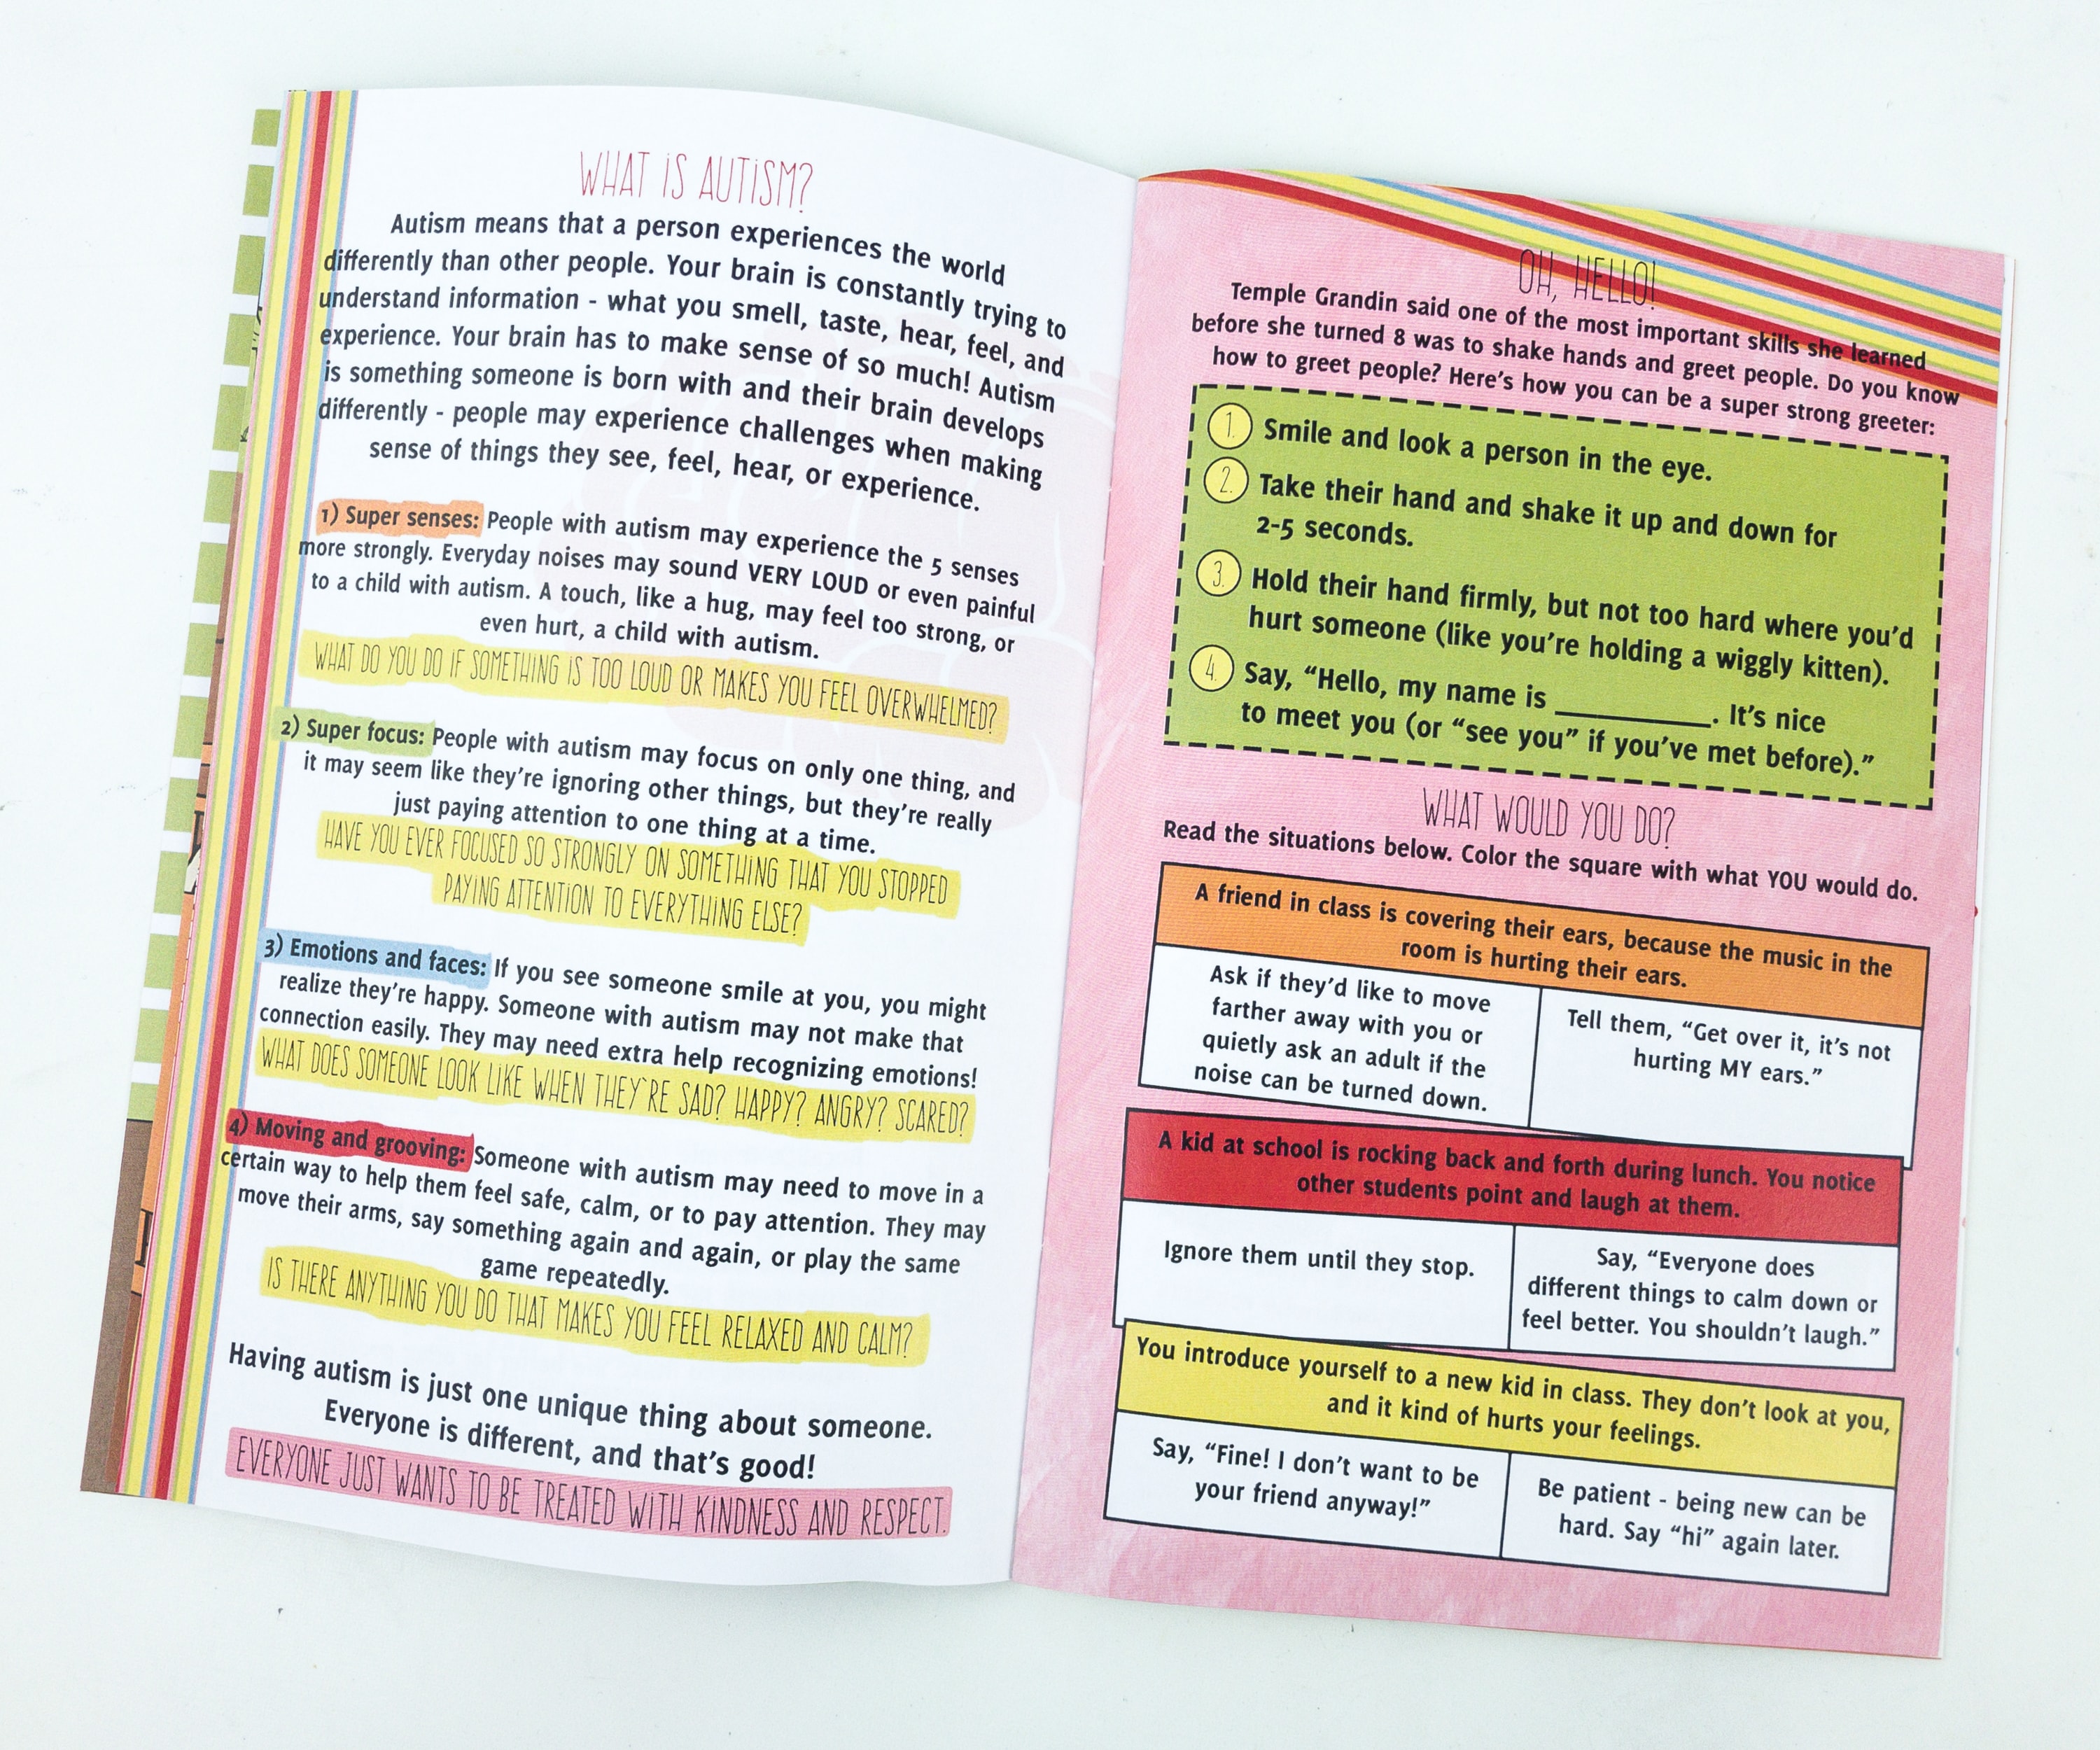 WHAT IS AUTISM?
Autism means that a person experiences the world
differently than other people. Your brain is constantly trying to
understand information - what you smell, taste, hear, feel, and
experience. Your brain has to make sense of so much! Autism
is something someone is born with and their brain develops
differently - people may experience challenges when making
sense of things they see, feel, hear, or experience.
1) Super senses: People with autism may experience the 5 senses
more strongly. Everyday noises may sound VERY LOUD or even painful
to a child with autism. A touch, like a hug, may feel too strong, or
even hurt, a child with autism.
WHAT DO YOU DO IF SOMETHING IS TOO LOUD OR MAKES YOU FEEL OVERWHELMED?
2) Super focus: People with autism may focus on only one thing, and
it may seem like they're ignoring other things, but they're really
just paying attention to one thing at a time.
HAVE YOU EVER FOCUSED SO STRONGLY ON SOMETHING THAT YOU STOPPED
PAYING ATTENTION TO EVERYTHING ELSE?
3) Emotions and faces: If you see someone smile at you, you might
realize they're happy. Someone with autism may not make that
connection easily. They may need extra help recognizing emotions!
WHAT DOES SOMEONE LOOK LIKE WHEN THEY'RE SAD? HAPPY? ANGRY? SCARED?
4) Moving and grooving: Someone with autism may need to move in a
certain way to help them feel safe, calm, or to pay attention. They may
move their arms, say something again and again, or play the same
game repeatedly.
IS THERE ANYTHING YOU DO THAT MAKES YOU FEEL RELAXED AND CALM?
Having autism is just one unique thing about someone.
Everyone is different, and that's good!
EVERYONE JUST WANTS TO BE TREATED WITH KINDNESS AND RESPECT.
OH, HELLO!
Temple Grandin said one of the most important skills she learned
before she turned 8 was to shake hands and greet people. Do you know
how to greet people? Here's how you can be a super strong greeter:
1. Smile and look a person in the eye.
2. Take their hand and shake it up and down for
2-5 seconds.
3. Hold their hand firmly, but not too hard where you'd
hurt someone (like you're holding a wiggly kitten).
4. Say, "Hello, my name is __________. It's nice
to meet you (or "see you" if you've met before)."
WHAT WOULD YOU DO?
Read the situations below. Color the square with what YOU would do.
A friend in class is covering their ears, because the music in the
room is hurting their ears.
Ask if they'd like to move
farther away with you or
quietly ask an adult if the
noise can be turned down.
Tell them, "Get over it, it's not
hurting MY ears."
A kid at school is rocking back and forth during lunch. You notice
other students point and laugh at them.
Ignore them until they stop.
Say, "Everyone does
different things to calm down or
feel better. You shouldn't laugh."
You introduce yourself to a new kid in class. They don't look at you,
and it kind of hurts your feelings.
Say, "Fine! I don't want to be
your friend anyway!"
Be patient - being new can be
hard. Say "hi" again later.